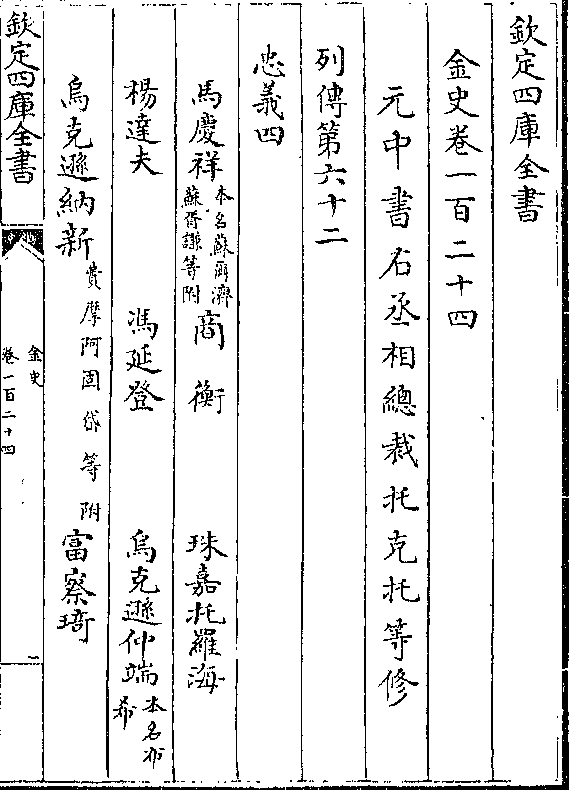 欽定四庫全書
金史卷一百二十四
元中書右丞相總裁托克托等修
列傳第六十二
忠義四
馬慶祥 本名蘇爾濟 蘇胥謙等附 商衡 珠嘉托羅海
楊達夫 馮延登 烏克遜仲端 本名布希
烏克遜納新 費摩阿固岱等附 富察琦
欽定四庫全書
金史
卷一百二十四
一